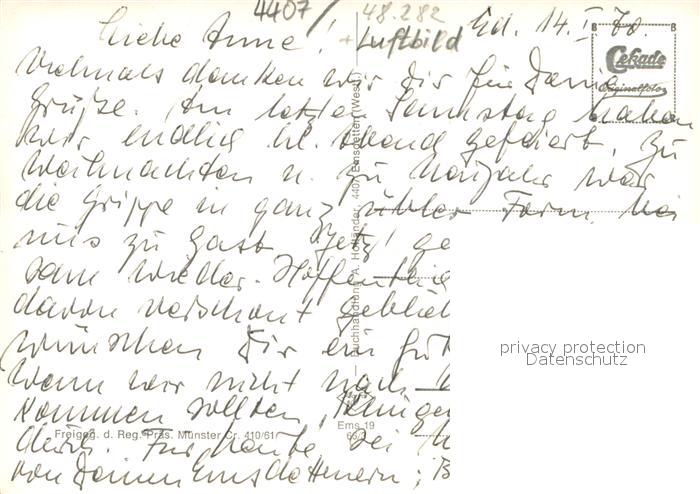 4407/ 48.282
+ Luftbild
Ed. 14. I. 70.
Cekade
Originalfoto
Liebe Anne!
Vielmals danken wir Dir für Deine
Grüße. Am letzten Samstag haben
wir endlich hl. Abend gefeiert. Zu
Weihnachten u. zu Neujahr war
die Grippe in ganz übler Form bei
uns zu Gast. Jetzt ge
sam wieder. Hoffentlich
davon verschont geblieb
wünschen Dir ein gut
Wenn wir nicht nach
kommen sollten,
Für heute sei
von Deinen Emsdettenern;
Buchhandlung A. Holländer, 4407 Emsdetten (Westf.)
Freigeg. d. Reg. Präs. Münster Cr. 410/61
Ems 19
privacy protection
Datenschutz